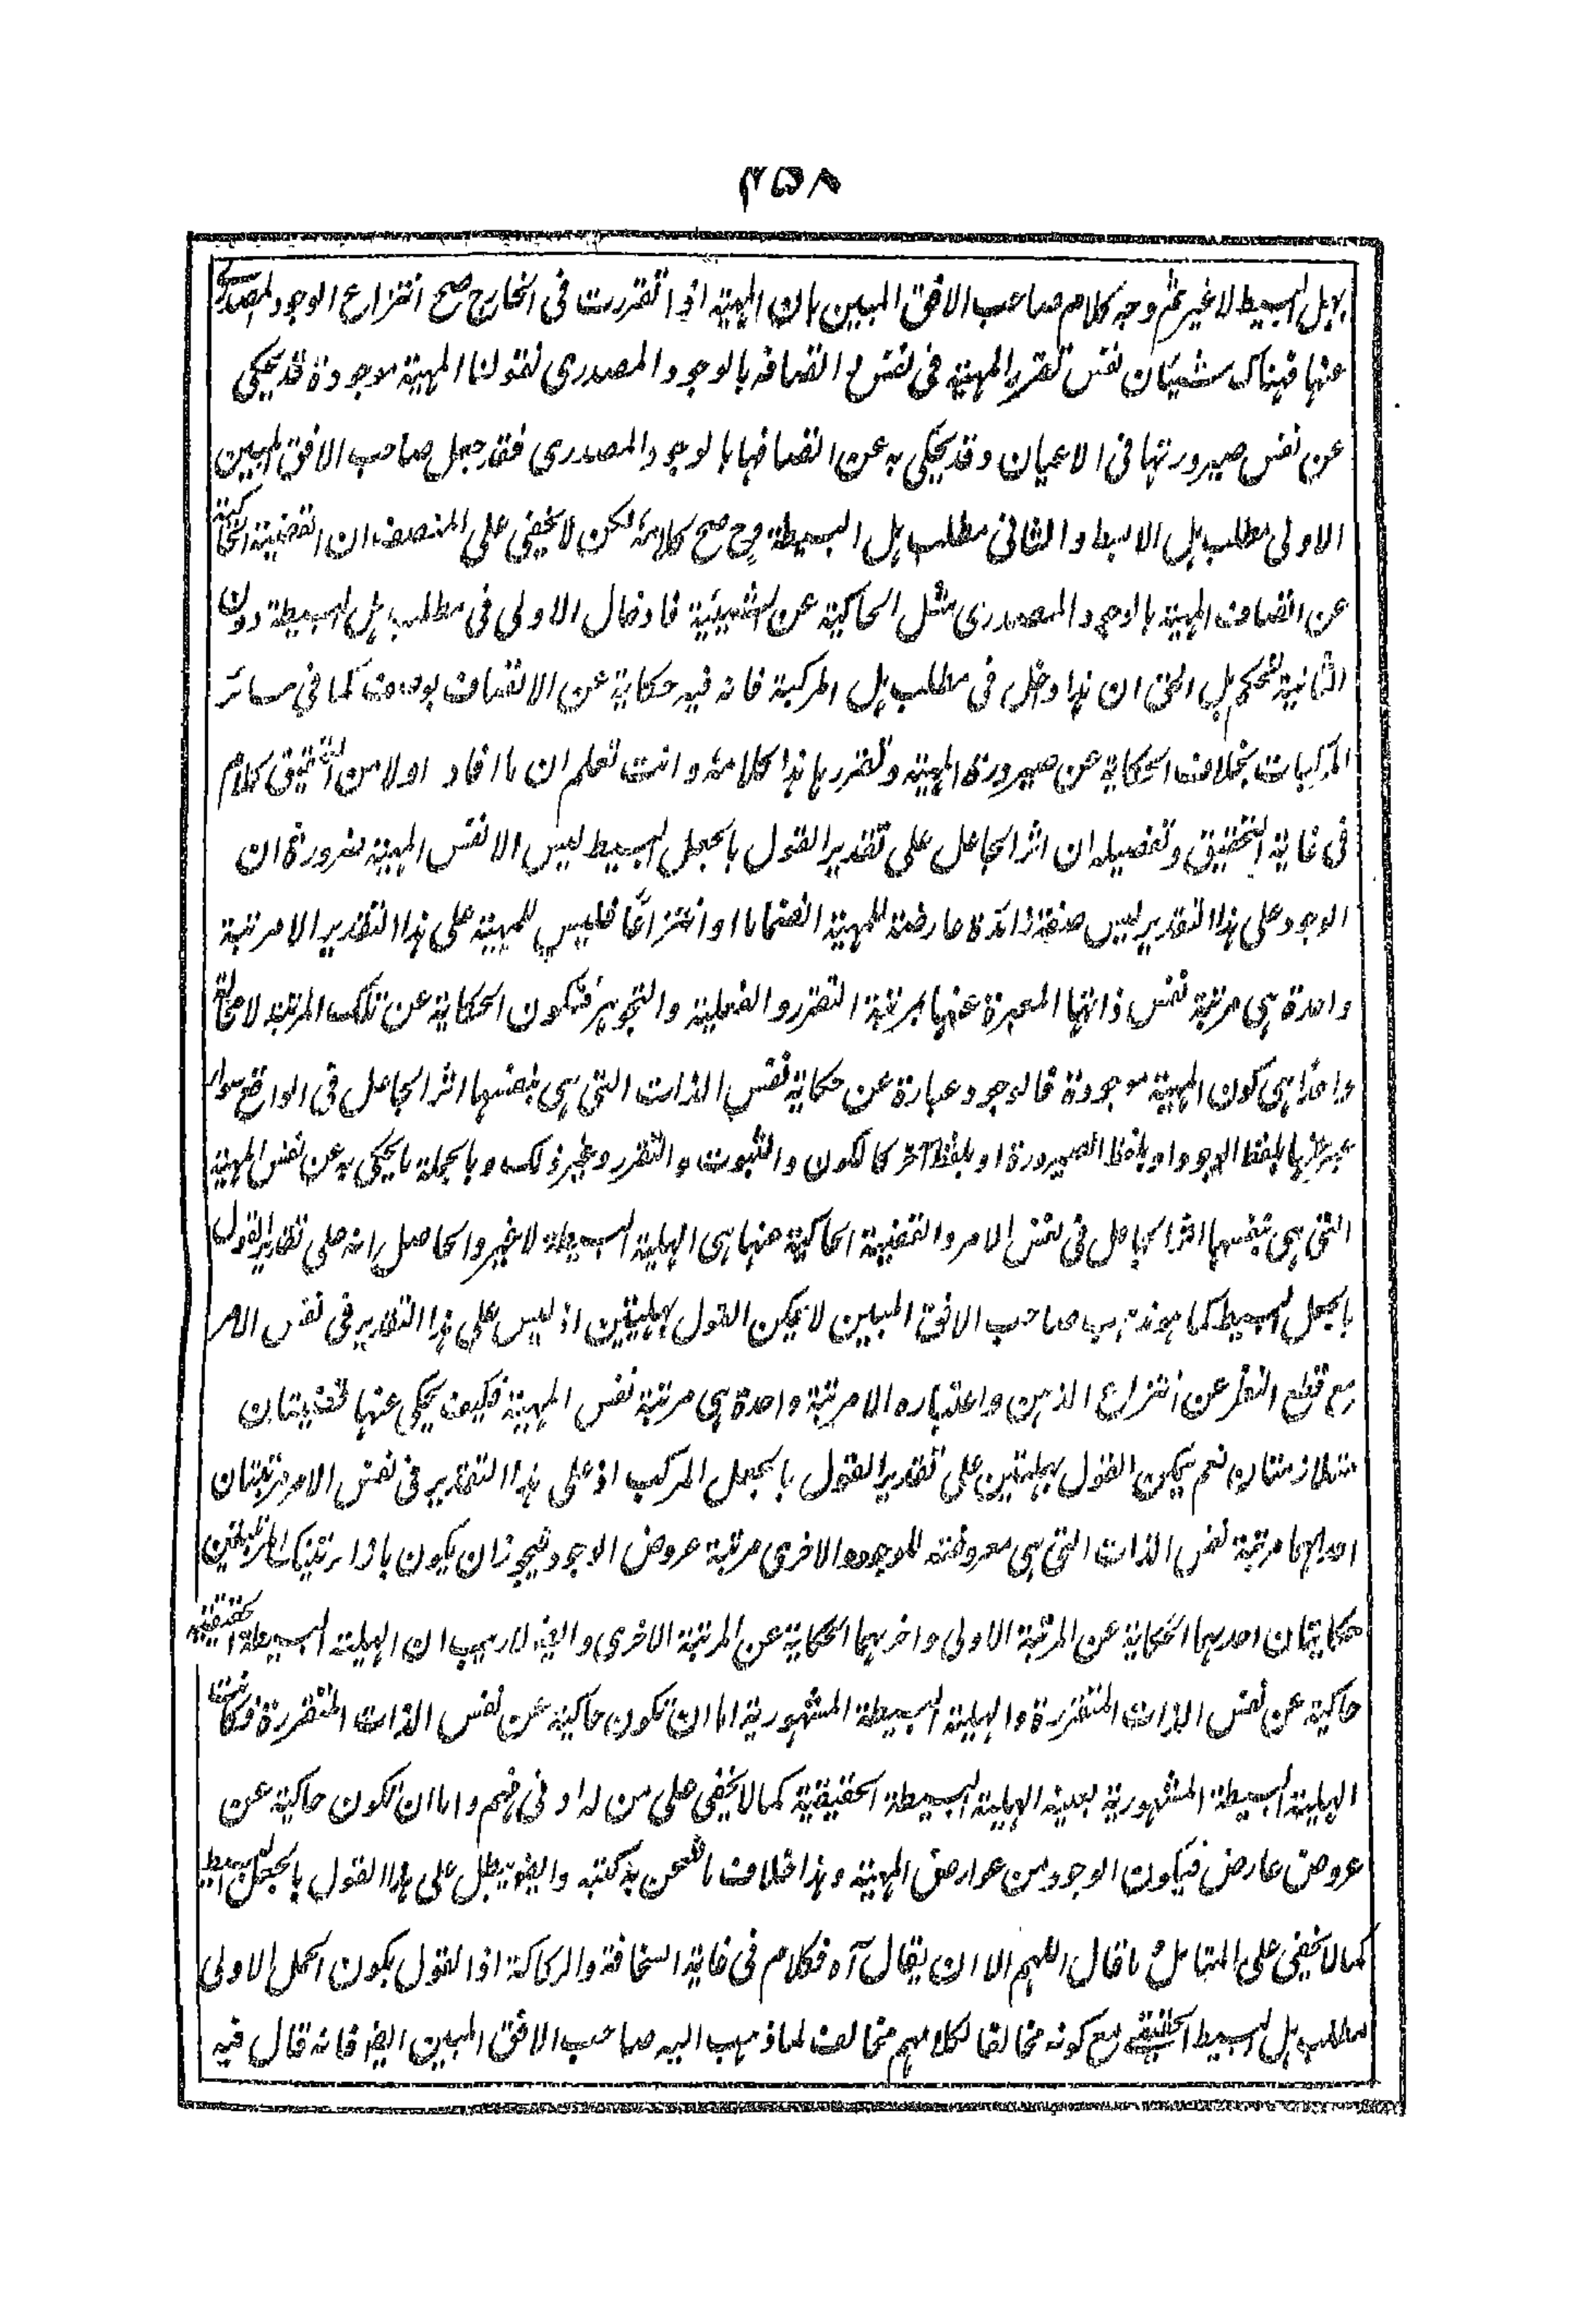 ٣٥٨
بهل البسيط لا غير ثم وجه كلام صاحب الافق المبين بان المهية اذا تقررت فى الخارج صح انتزاع الوجود المصدرى
عنها فهناك شيئان نفس تقرر المهية فى نفس و اتصافه بالوجود المصدرى فقولنا المهية موجودة قد يحكى
عن نفس صيرورتها فى الاعيان وقد يحكى به عن اتصافها بالوجود المصدرى فقد جعل صاحب الافق المبين
الاولى مطلب هل الابسط والثانى مطلب هل البسيطة وح صح كلامه لكن لا يخفى على المنصف ان القضية الحاكية
عن اتصاف المهية بالوجود المصدرى مثل الحاكية عن الشيئية فادخال الاولى فى مطلب هل البسيطة دون
الثانية تحكم بل الحق ان هذا داخل فى مطلب هل المركبة فانه فيه حكاية عن الاتصاف بوصف كما في سائر
المركبات بخلاف الحكاية عن صيرورة المهية وتقررها هذا كلامه وانت تعلم ان ما افاد اولا من التحقيق كلام
فى غاية التحقيق وتفصيله ان اثر الجاعل على تقدير القول بالجعل البسيط ليس الا نفس المهية ضرورة ان
الوجود على هذا التقدير ليس صفة زائدة عارضة للمهية انضماما او انتزاعا فليس للمهية على هذا التقدير الا مرتبة
واحدة هى مرتبة نفس ذاتها المعبرة عنها بمرتبة التقرر والفعلية والتجوهر فتكون الحكاية عن تلك المرتبة لا محالة
واحدا هى كون المهية موجودة فالوجود عبارة عن حكاية نفس الذات التى هى بنفسها اثر الجاعل فى الواقع سواء
عبر عنها بلفظ الوجود او بلفظ الصيرورة او بلفظ آخر كالكون والثبوت والتقرر وغير ذلك وبالجملة ما يحكى به عن نفس المهية
التى هى بنفسها اثر الجاعل فى نفس الامر والقضية الحاكية عنها هى الهلية البسيطة لا غير والحاصل انه على تقدير القول
بالجعل البسيط كما هو مذهب صاحب الافق المبين لا يمكن القول بهليتين اذ ليس على هذا التقدير فى نفس الامر
مع قطع النظر عن انتزاع الذهن واعتباره الا مرتبة واحدة هى مرتبة نفس المهية فكيف يحكى عنها قضيتان
متلازمتان نعم يمكن القول بهليتين على تقدير القول بالجعل المركب اذ على هذا التقدير فى نفس الامر مرتبتان
احدهما مرتبة نفس الذات التى هى معروضة للوجود والاخرى مرتبة عروض الوجود فيجوز ان يكون بازاء تينك المرتبتين
حكايتان احدهما الحكاية عن المرتبة الاولى واخرهما الحكاية عن المرتبة الاخرى وايضا لا ريب ان الهلية البسيطة الحقيقية
حاكية عن نفس الذات المتقررة والهلية البسيطة المشهورية اما ان تكون حاكية عن نفس الذات المتقررة فكانت
الهلية البسيطة المشهورية بعينه الهلية البسيطة الحقيقية كما لا يخفى على من له ادنى فهم واما ان تكون حاكية عن
عروض عارض فيكون الوجود من عوارض المهية وهذا خلاف ما شحن به كتبه وايضا يبطل على هذا القول بالجعل البسيط
كما لا يخفى على المتامل وما قال اللهم الا ان يقال آه فكلام فى غاية السخافة والركاكة اذ القول بكون الحمل الاولى
مطلب هل البسيط الحقيقى مع كونه مخالفا لكلامهم مخالف لما ذهب اليه صاحب الافق المبين ايضا فانه قال فيه